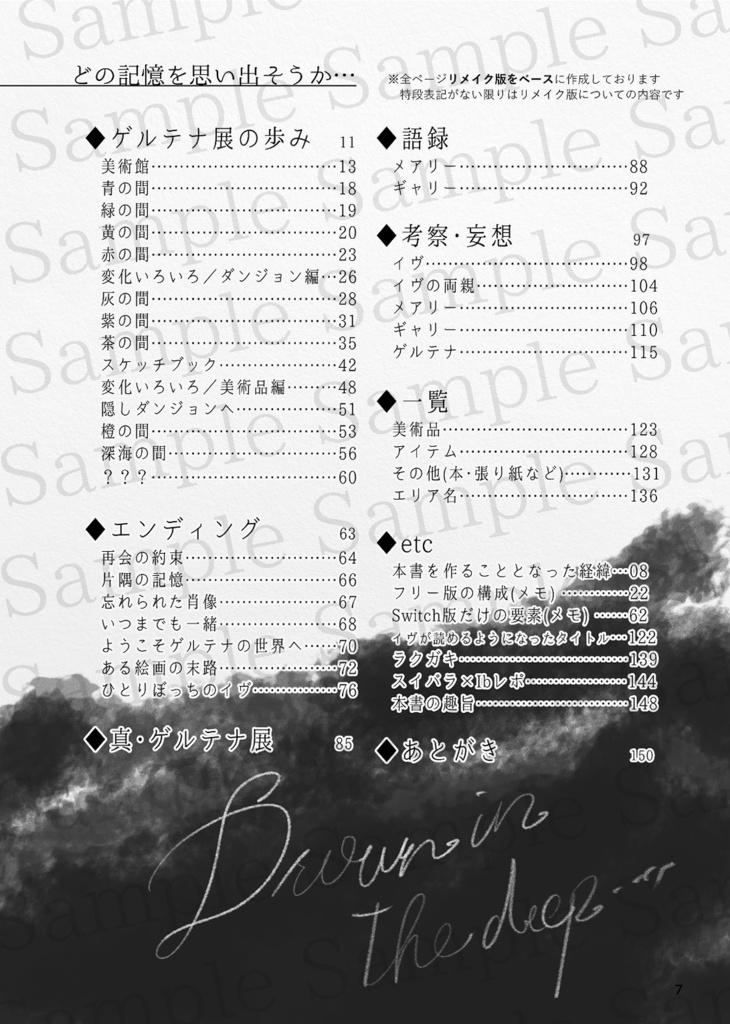 どの記憶を思い出そうか…
※全ページリメイク版をベースに作成しております
特段表記がない限りはリメイク版についての内容です
◆ゲルテナ展の歩み 11
美術館……………………………13
青の間……………………………18
緑の間……………………………19
黄の間……………………………20
赤の間……………………………23
変化いろいろ／ダンジョン編…26
灰の間……………………………28
紫の間……………………………31
茶の間……………………………35
スケッチブック…………………42
変化いろいろ／美術品編………48
隠しダンジョンへ………………51
橙の間……………………………53
深海の間…………………………56
？？？……………………………60
◆エンディング 63
再会の約束………………………64
片隅の記憶………………………66
忘れられた肖像…………………67
いつまでも一緒…………………68
ようこそゲルテナの世界へ……70
ある絵画の末路…………………72
ひとりぼっちのイヴ……………76
◆真・ゲルテナ展 85
◆語録
メアリー…………………………88
ギャリー…………………………92
◆考察・妄想 97
イヴ………………………………98
イヴの両親………………………104
メアリー…………………………106
ギャリー…………………………110
ゲルテナ…………………………115
◆一覧
美術品……………………………123
アイテム…………………………128
その他(本・張り紙など)…………131
エリア名…………………………136
◆etc
本書を作ることとなった経緯…08
フリー版の構成(メモ)…………22
Switch版だけの要素(メモ)……62
イヴが読めるようになったタイトル…122
ラクガキ…………………………139
スイパラ×Ibレポ………………144
本書の趣旨………………………148
◆あとがき 150
Drown in
the deep…
7
Sample Sample Sample